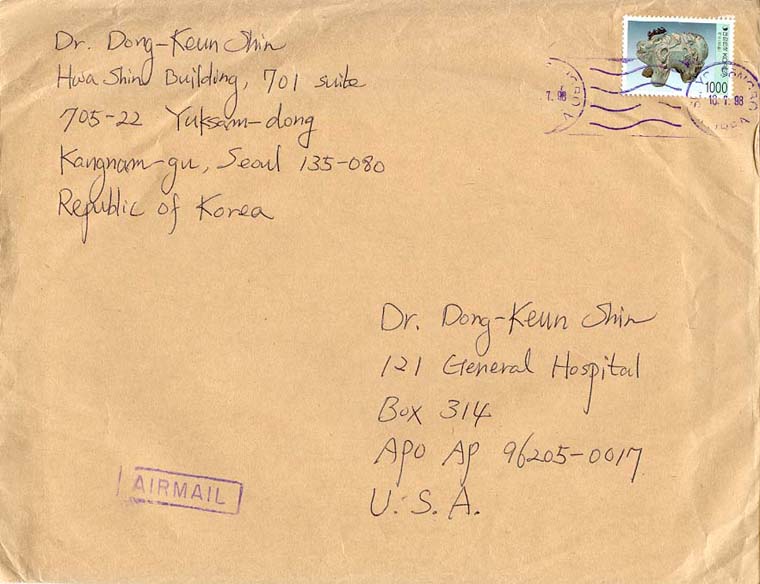 Dr. Dong-Keun Shin
Hwa Shin Building, 701 suite
705-22 Yuksam-dong
Kangnam-gu, Seoul 135-080
Republic of Korea
1000
7. 98
10. 7. 98
Dr. Dong-Keun Shin
121 General Hospital
Box 314
APO AP 96205-0017
U.S.A.
AIRMAIL